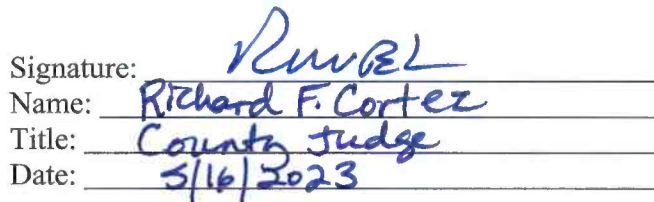 Signature:
Name: Richard F. Cortez
Title: County Judge
Date: 5/16/2023